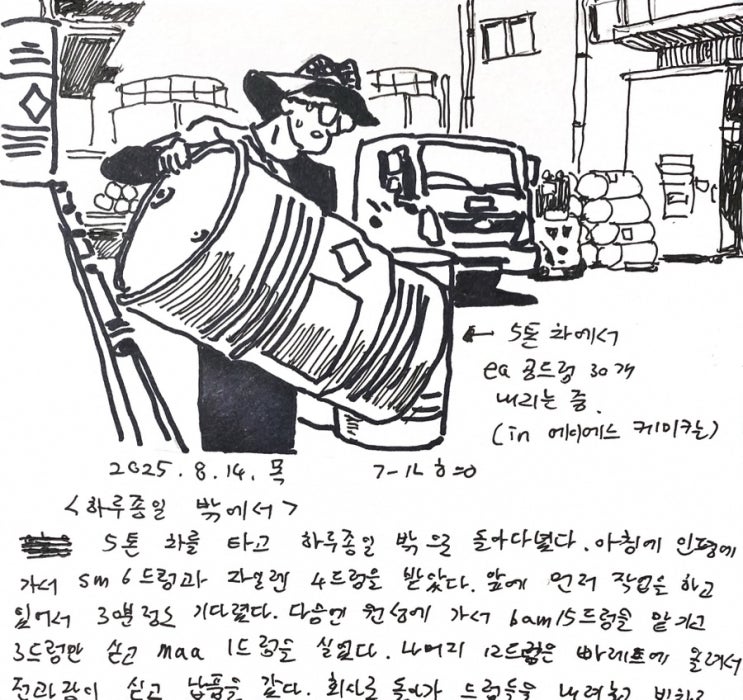 ← 5톤 차에서
ea 공드럼 30개
내리는 중.
(in 에이에스 케미칼)
2025. 8. 14. 목
<하루종일 밖에서>
5톤 차를 타고 하루종일 밖을 돌아다녔다. 아침에 인평에
가서 sm 6드럼과 자일렌 4드럼을 받았다. 앞에 먼저 작업을 하고
있어서 30분정도 기다렸다. 다음엔 원성에 가서 bam 15드럼을 맡기고
3드럼만 싣고 maa 1드럼을 실었다. 나머지 12드럼은 빠레트에 올려서
싣고 납품을 갔다. 회사로 돌아가 드럼들을 내려놓고